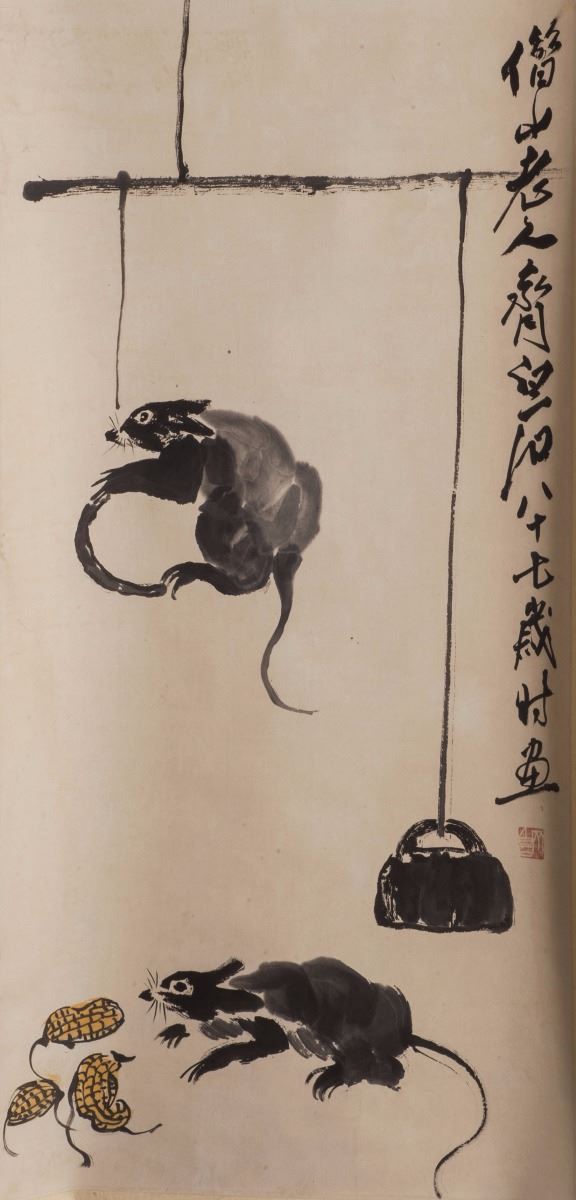 借山老人齊白石八十七歲時畫